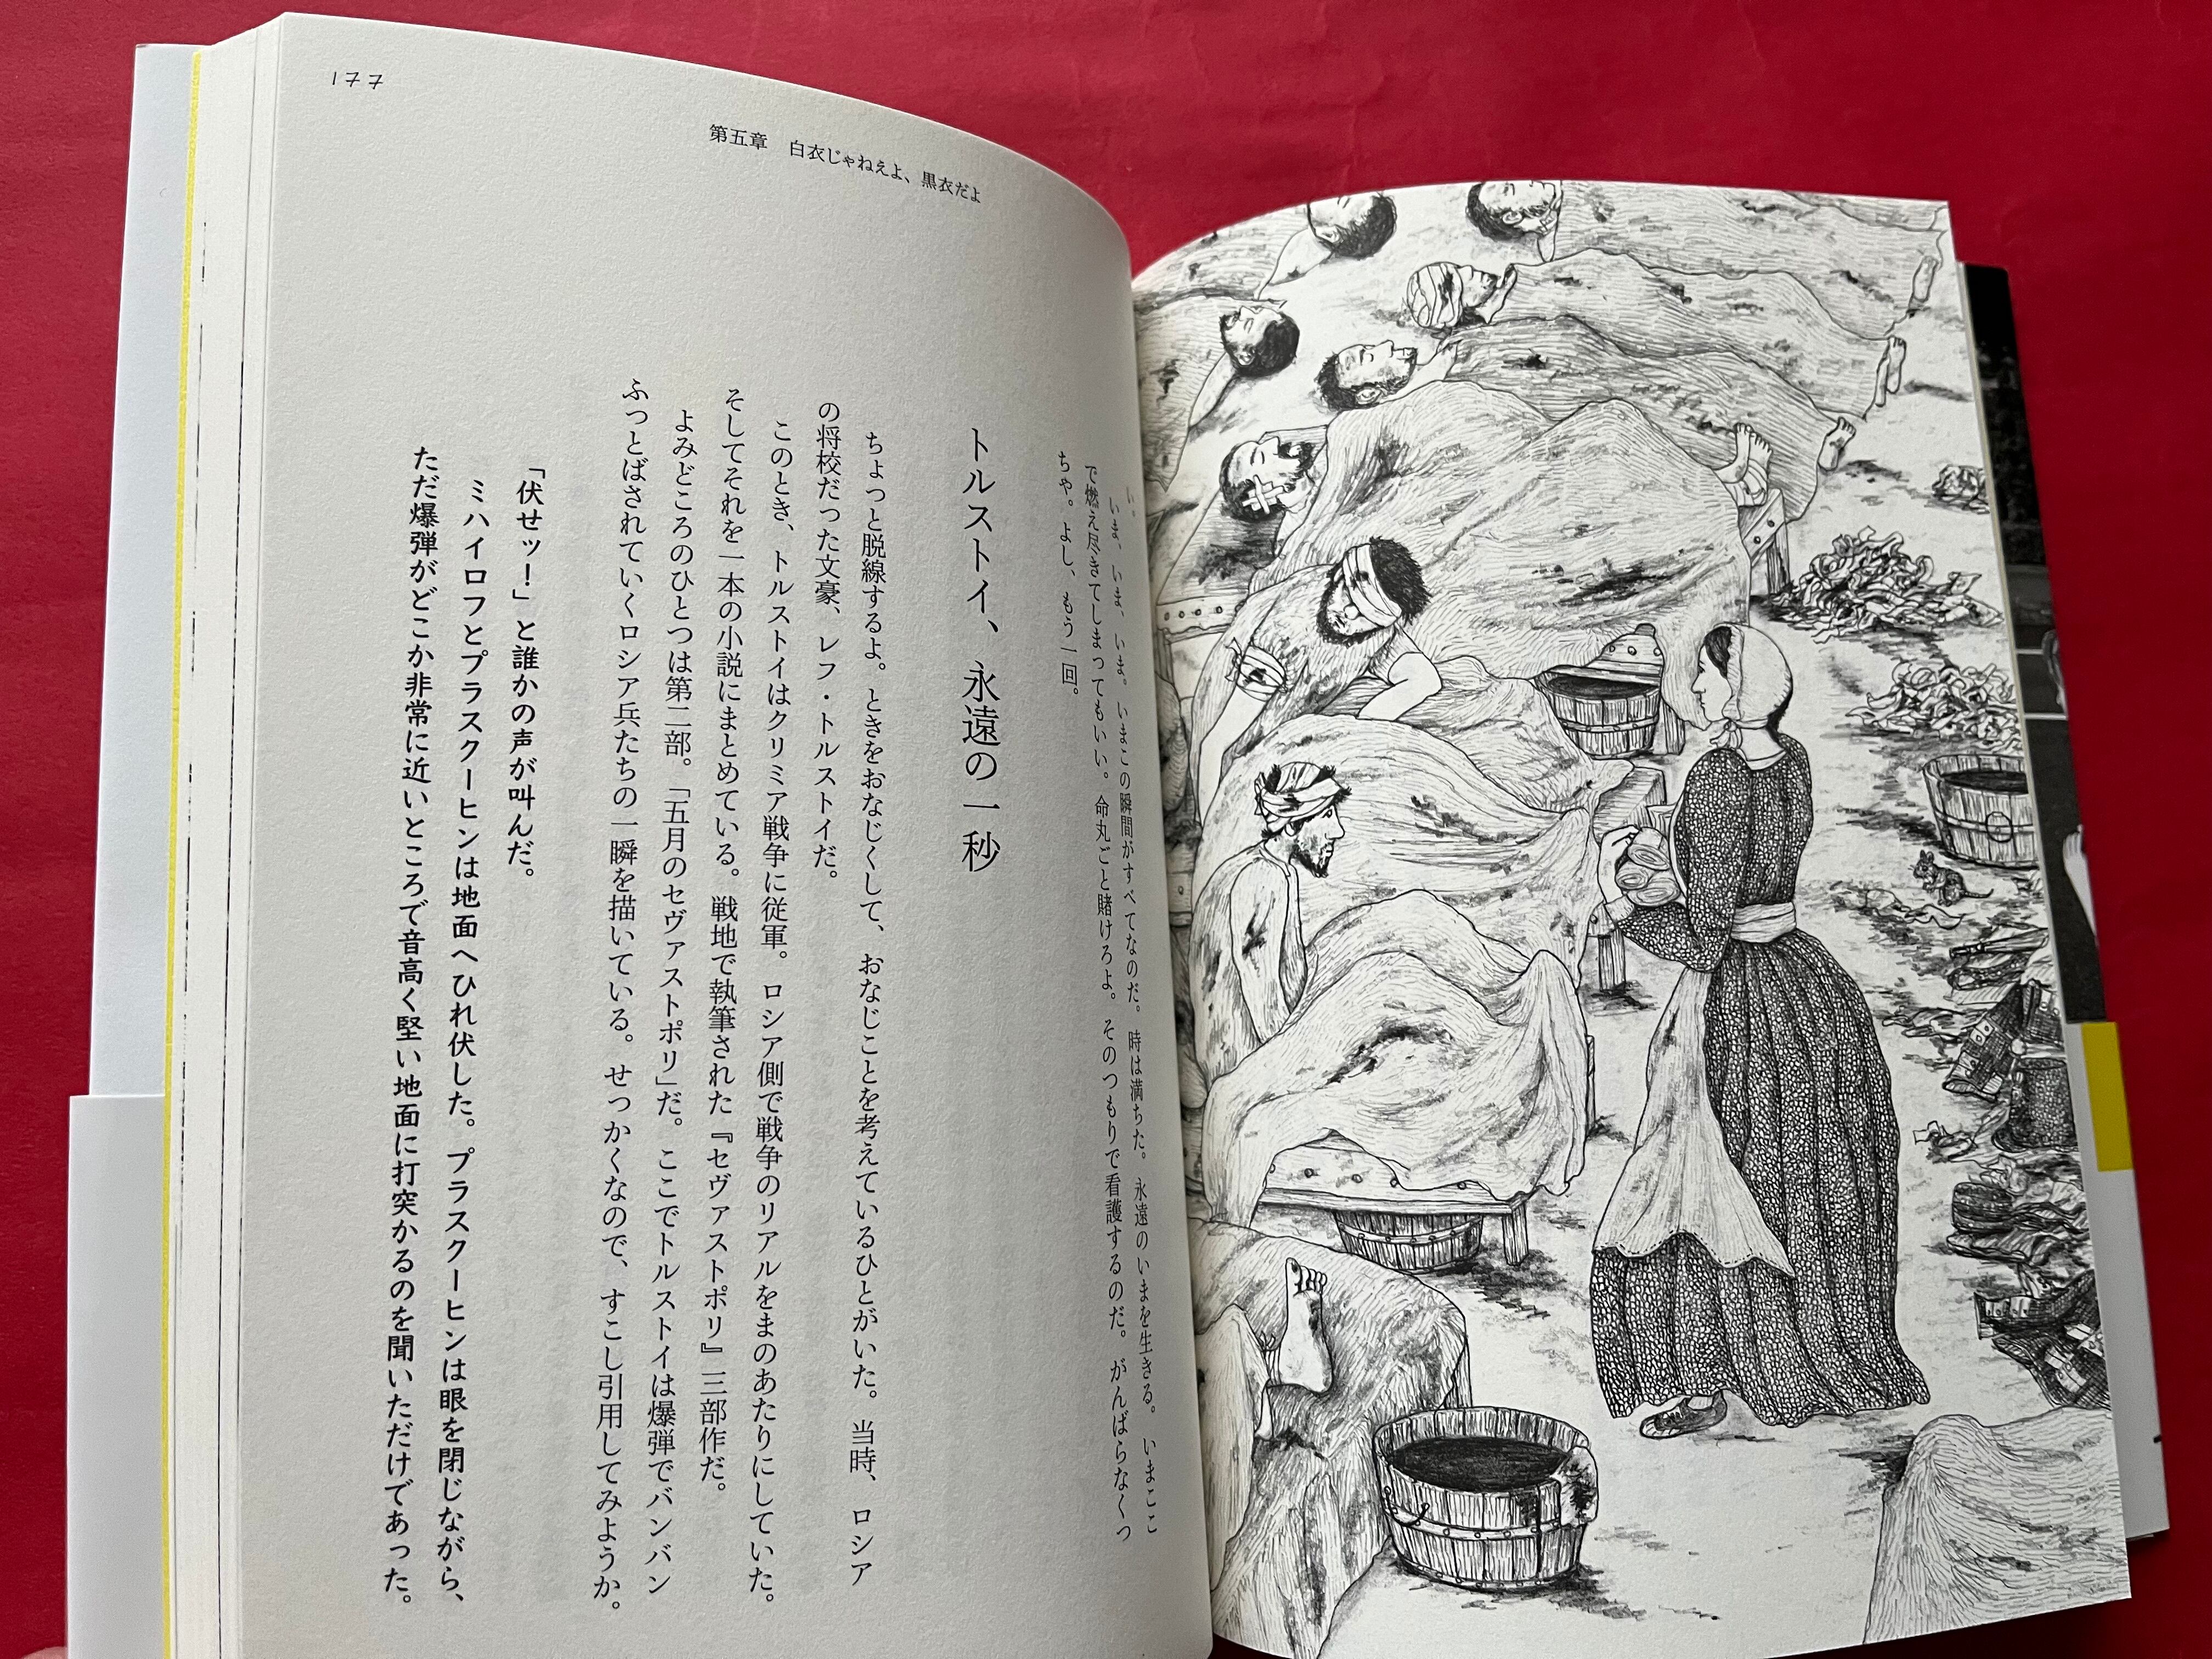 177
第五章　白衣じゃねえよ、黒衣だよ
い。
いま、いま、いま。いまこの瞬間がすべてなのだ。時は満ちた。永遠のいまを生きる。いまここ
で燃え尽きてしまってもいい。命丸ごと賭けろよ。そのつもりで看護するのだ。がんばらなくっ
ちゃ。よし、もう一回。
トルストイ、永遠の一秒
ちょっと脱線するよ。ときをおなじくして、おなじことを考えているひとがいた。当時、ロシア
の将校だった文豪、レフ・トルストイだ。
このとき、トルストイはクリミア戦争に従軍。ロシア側で戦争のリアルをまのあたりにしていた。
そしてそれを一本の小説にまとめている。戦地で執筆された『セヴァストポリ』三部作だ。
よみどころのひとつは第二部。「五月のセヴァストポリ」だ。ここでトルストイは爆弾でバンバン
ふっとばされていくロシア兵たちの一瞬を描いている。せっかくなので、すこし引用してみようか。
「伏せッ！」と誰かの声が叫んだ。
ミハイロフとプラスクーヒンは地面へひれ伏した。プラスクーヒンは眼を閉じながら、
ただ爆弾がどこか非常に近いところで音高く堅い地面に打突かるのを聞いただけであった。